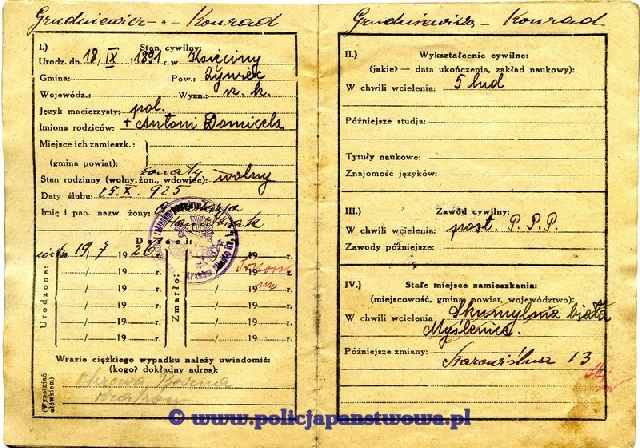 Grudniewicz - Konrad
I.) Stan cywilny
Urodz. do 18 IX 1891 r. w Książiny
Gmina: Pow.: Żywiec
Wojewódz.: Wyzn.: rz. k.
Język macierzysty: pol.
Imiona rodziców: + Antoni Domicela
Miejsce ich zamieszk.:
(gmina powiat):
żonaty
Stan rodzinny (wolny, żon., wdowiec): wolny
Daty ślubu: X. 925
Imię i pan. nazw. żony:
Dzieci:
19 7 26 19 r.
/ / 19 r. / 19 r.
/ / 19 r. / 19 r.
/ / 19 r. / 19 r.
/ / 19 r. / 19 r.
/ / 19 r. / 19 r.
Urodzone:
Zmarło:
Wrazie ciężkiego wypadku należy uwiadomić:
(kogo? dokładny adres):
(Wrzedzieć ołówkiem)
Kraków
Konrad
II.) Wykształcenie cywilne:
(jakie? — data ukończenia, zakład naukowy):
W chwili wcielenia: 5 lud
Późniejsze studja:
Tytuły naukowe:
Znajomość języków:
III.) Zawód cywilny:
W chwili wcielenia: post. P. P. P.
Zawody późniejsze:
IV.) Stałe miejsce zamieszkania:
(miejscowość, gmina, powiat, województwo):
W chwili wcielenia: Biała
Myślenice.
Późniejsze zmiany: Starowiślna 13
© www.policjapanstwowa.pl